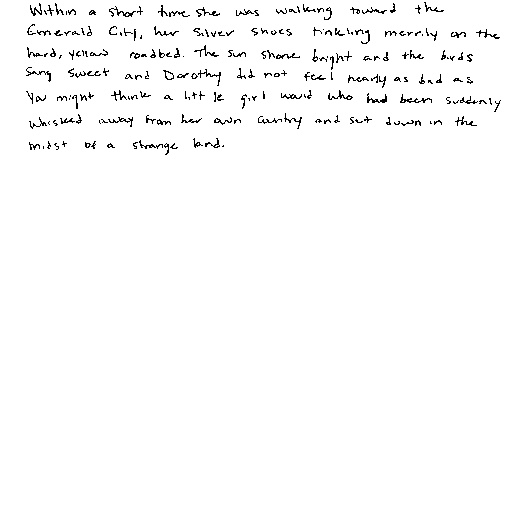 Within a short time she was walking toward the
Emerald City, her Silver Shoes tinkling merrily on the
hard, yellow roadbed. The sun shone bright and the birds
Sang Sweet and Dorothy did not feel nearly as bad as
you might think a little girl would who had been suddenly
whisked away from her own Country and set down in the
midst of a strange land.